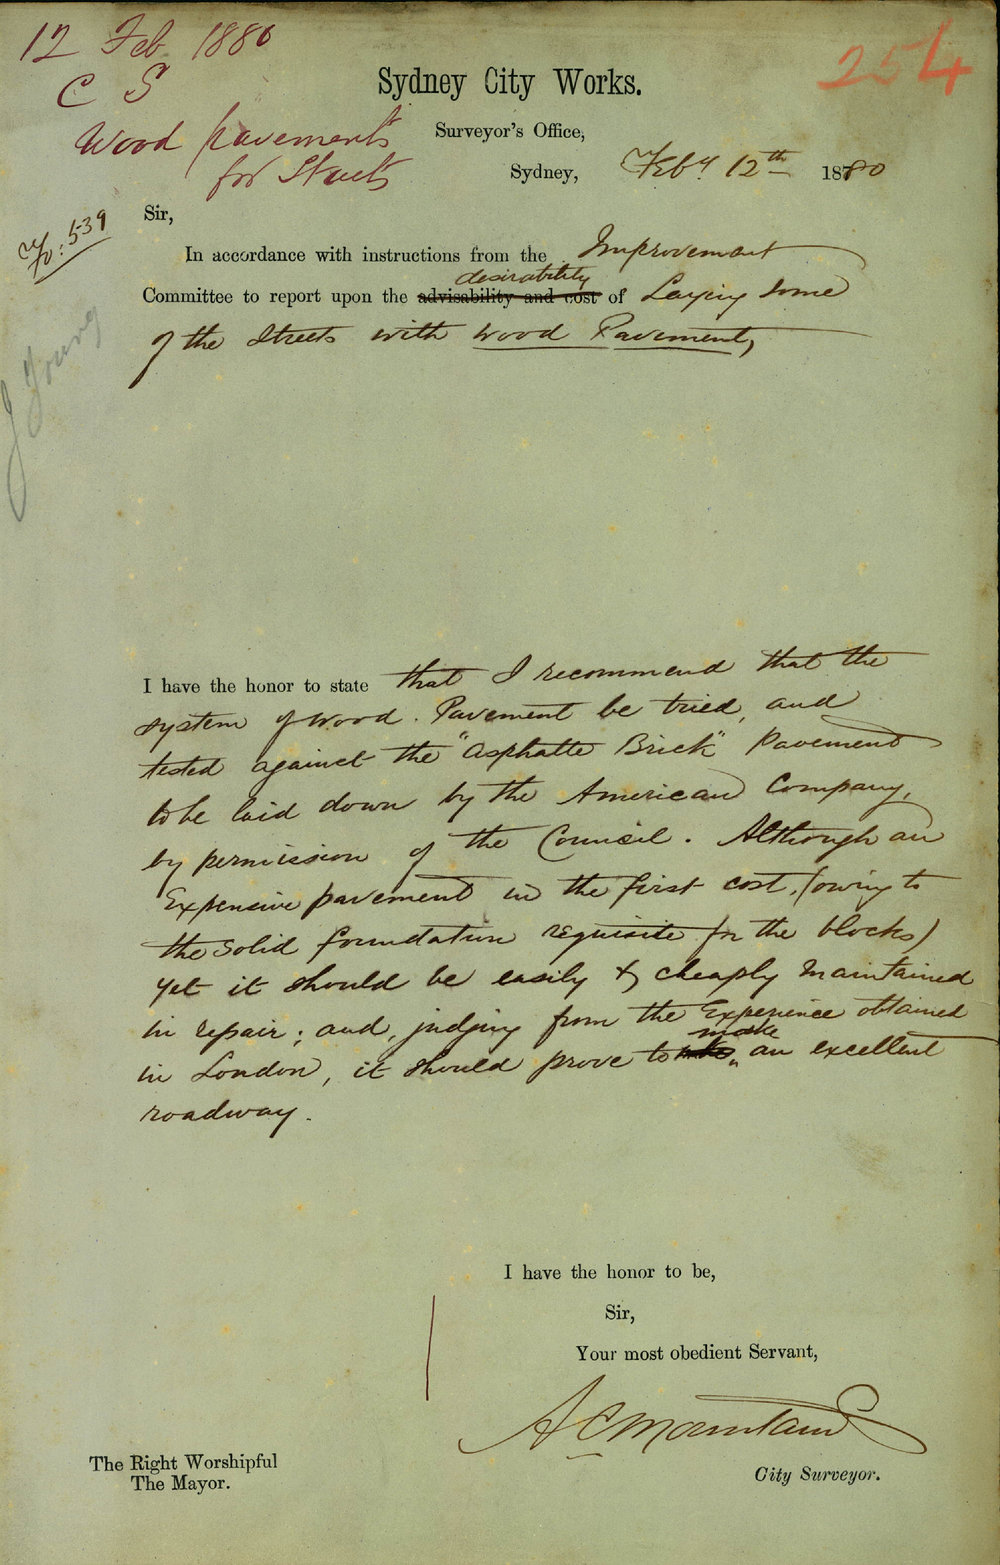 12 Feb 1880
254
C S
Sydney City Works.
Wood pavements
Surveyor's Office,
for Streets
Sydney, Feby 12th 1880
Sir,
Fo: 539
In accordance with instructions from the Improvement
desirability
Committee to report upon the advisability and cost of Laying some
of the Streets with Wood Pavement,
J Young
I have the honor to state that I recommend that the
system of Wood. Pavement be tried, and
tested against the "Asphalte Brick" Pavement
to be laid down by the American Company,
by permission of the Council. Although an
Expensive pavement in the first cost, (owing to
the solid foundation requisite for the blocks)
yet it should be easily & cheaply maintained
in repair; and, judging from the Experience obtained
make
in London, it should prove to an excellent
roadway.
I have the honor to be,
Sir,
Your most obedient Servant,
A C Mountain
The Right Worshipful
The Mayor.
City Surveyor.